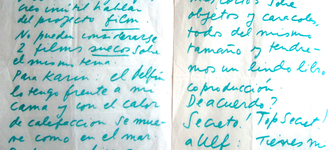 del proyecto film
No pueden considerarse
2 films suecos sobre
el mismo tema.
Para Karin el delfín
lo tengo frente a mi
cama y con el calor
de calefacción se mue-
ve como en el mar
sobre
objetos y caracoles,
todos del mismo
tamaño y tendre-
mos un lindo libro
coproducción.
De acuerdo?
Secreto! Top Secret!
a Ulf: Tienes